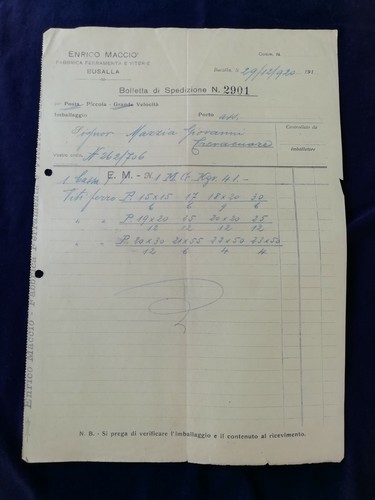 ENRICO MACCIO'
FABBRICA FERRAMENTA E VITERIE
BUSALLA
Comm. la
Busalla, li 29/12/920 191
Bolletta di Spedizione N. 2901
per Posta - Piccola - Grande Velocità
Imballaggio Porto ass.
Signor Mazzia Giovanni
Controllato da
Imballatore
# 262/706
1 cassa E. M. - N. 1 Kgr. 41.-
Viti ferro P. 15x15 17 18x20 20
6 6 9 6
" " P. 19x20 25 20x20 25
12 12 12 12
" " P. 20x30 20x55 22x50 23x50
12 6 4 4
Enrico Maccio -
N. B. - Si prega di verificare l'imballaggio e il contenuto al ricevimento.